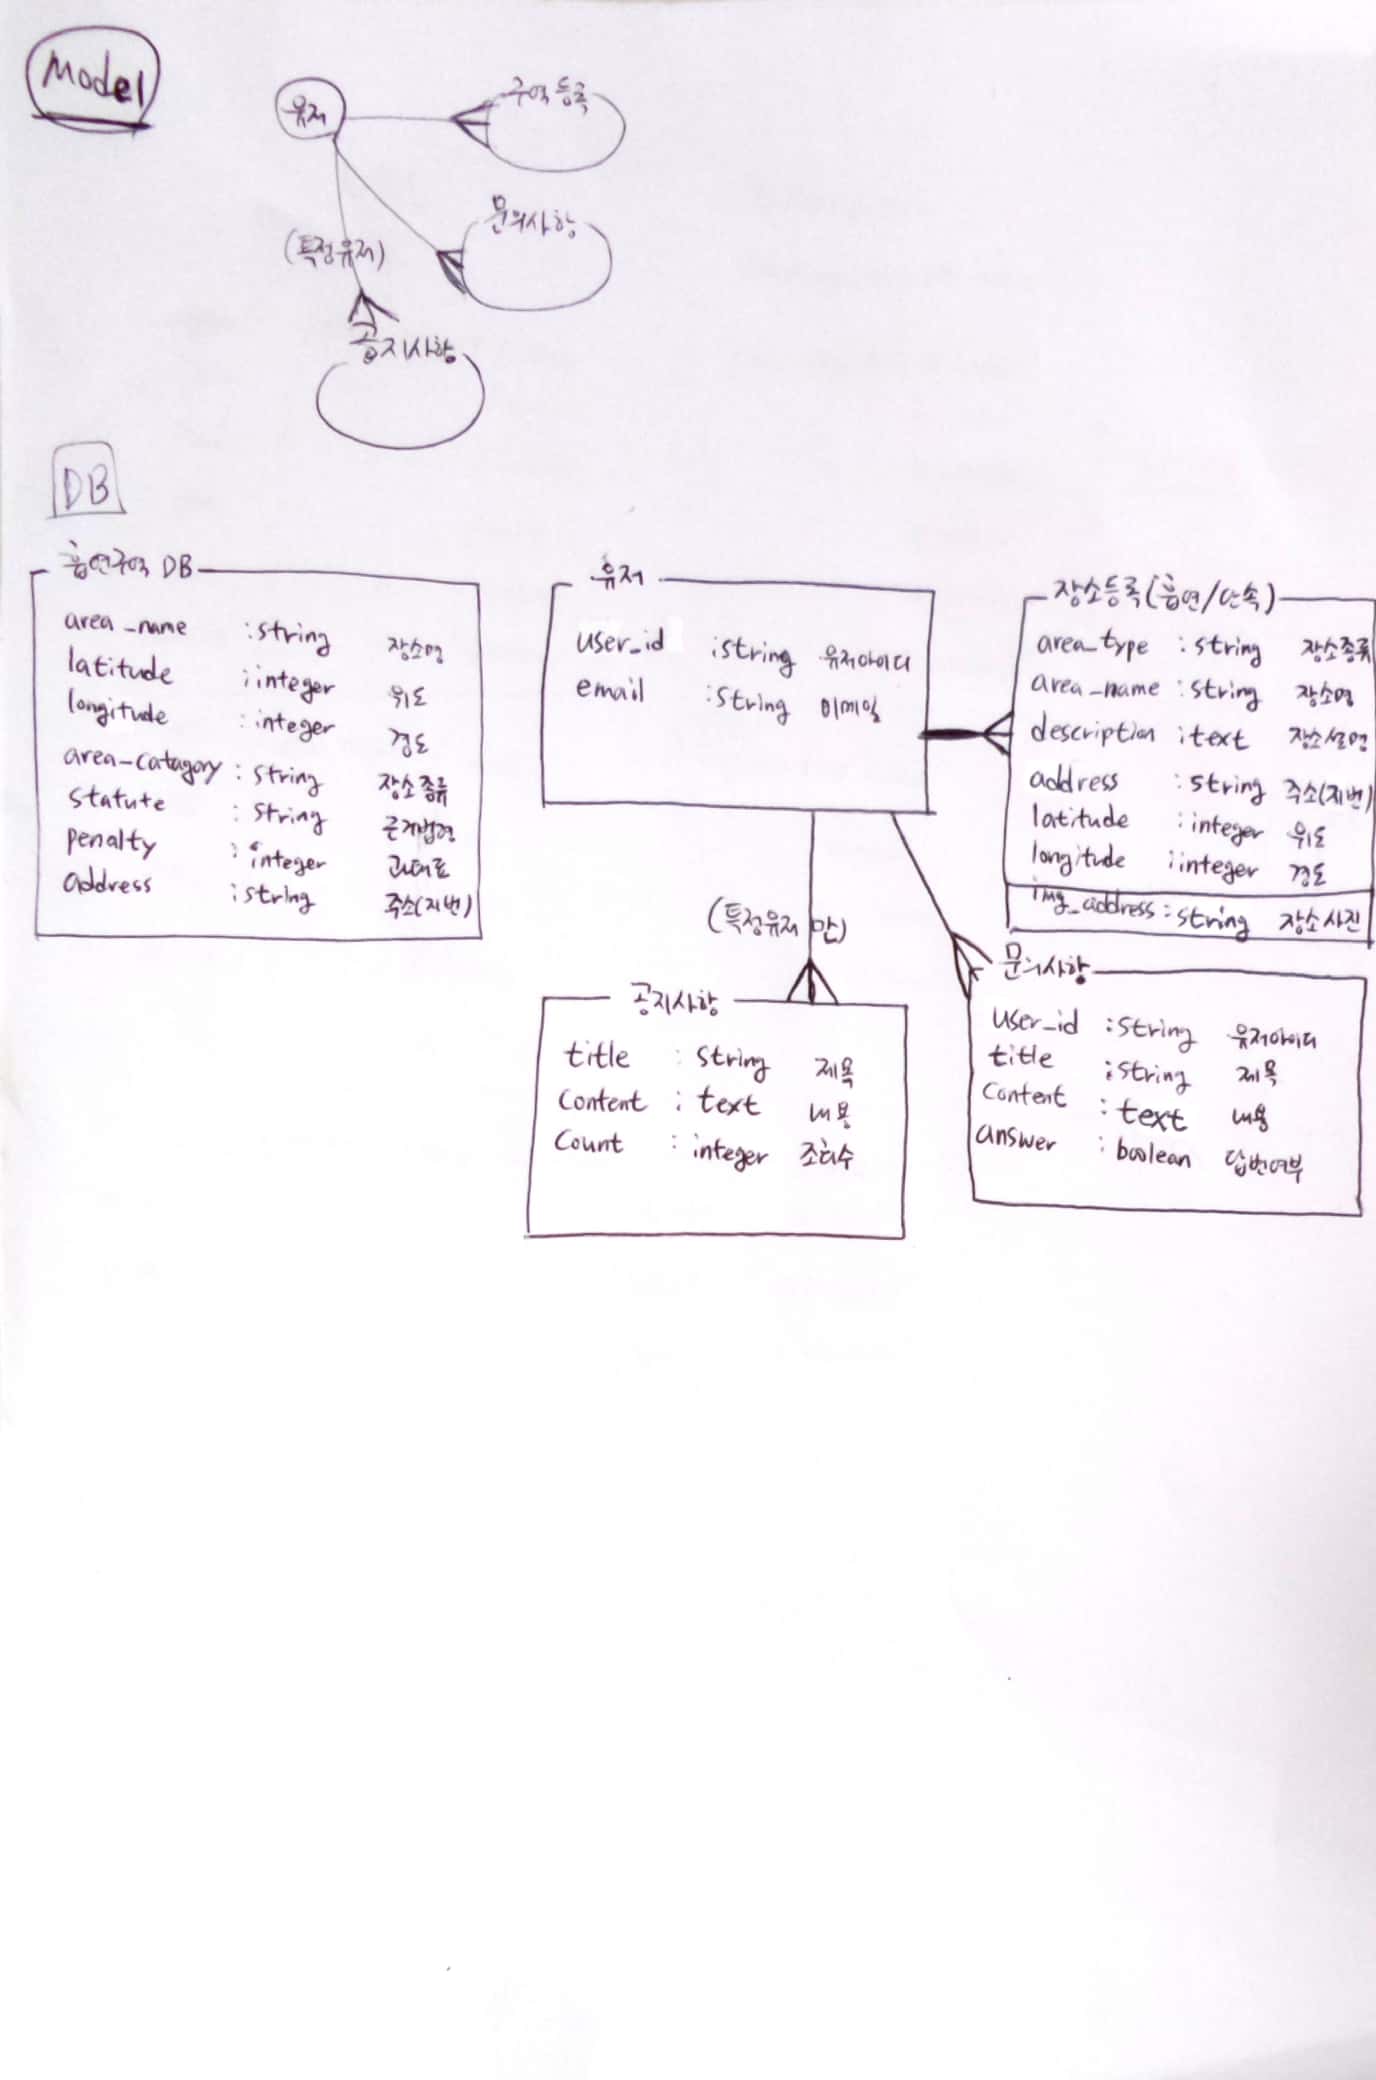 Model
유저
구역등록
문의사항
(특정유저)
공지사항
DB
흡연구역 DB
area_name : string 장소명
latitude : integer 위도
longitude : integer 경도
area-catagory : string 장소종류
statute : string 근거법령
penalty : integer 과태료
address : string 주소(지번)
유저
user_id : string 유저아이디
email : string 이메일
장소등록(흡연/단속)
area_type : string 장소종류
area_name : string 장소명
description : text 장소설명
address : string 주소(지번)
latitude : integer 위도
longitude : integer 경도
img_address : string 장소사진
(특정유저 만)
공지사항
title : string 제목
content : text 내용
count : integer 조회수
문의사항
user_id : string 유저아이디
title : string 제목
content : text 내용
answer : boolean 답변여부